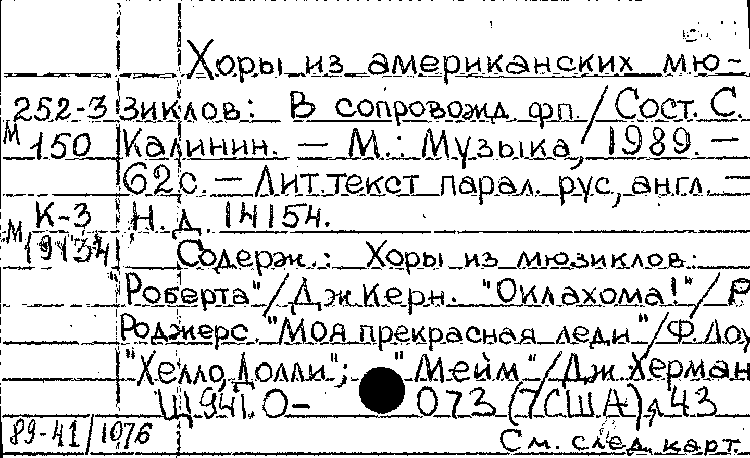 Хоры из американских мю-
252-3 зиклов: В сопровожд фп. / Сост. С.
М 150 Калинин. — М.: Музыка, 1989. —
62 с. — Лит. текст парал. рус, англ. —
К-3 Н. д. 14154.
М 19134 Содерж.: Хоры из мюзиклов:
"Роберта" / Дж Керн. "Оклахома!" / Р
Роджерс. "Моя прекрасная леди" / Ф. Лоу
"Хелло, Долли"; "Мейм" / Дж. Херман
Щ941.0- 073 (7США)я43
89-41/1076
См. след. карт.